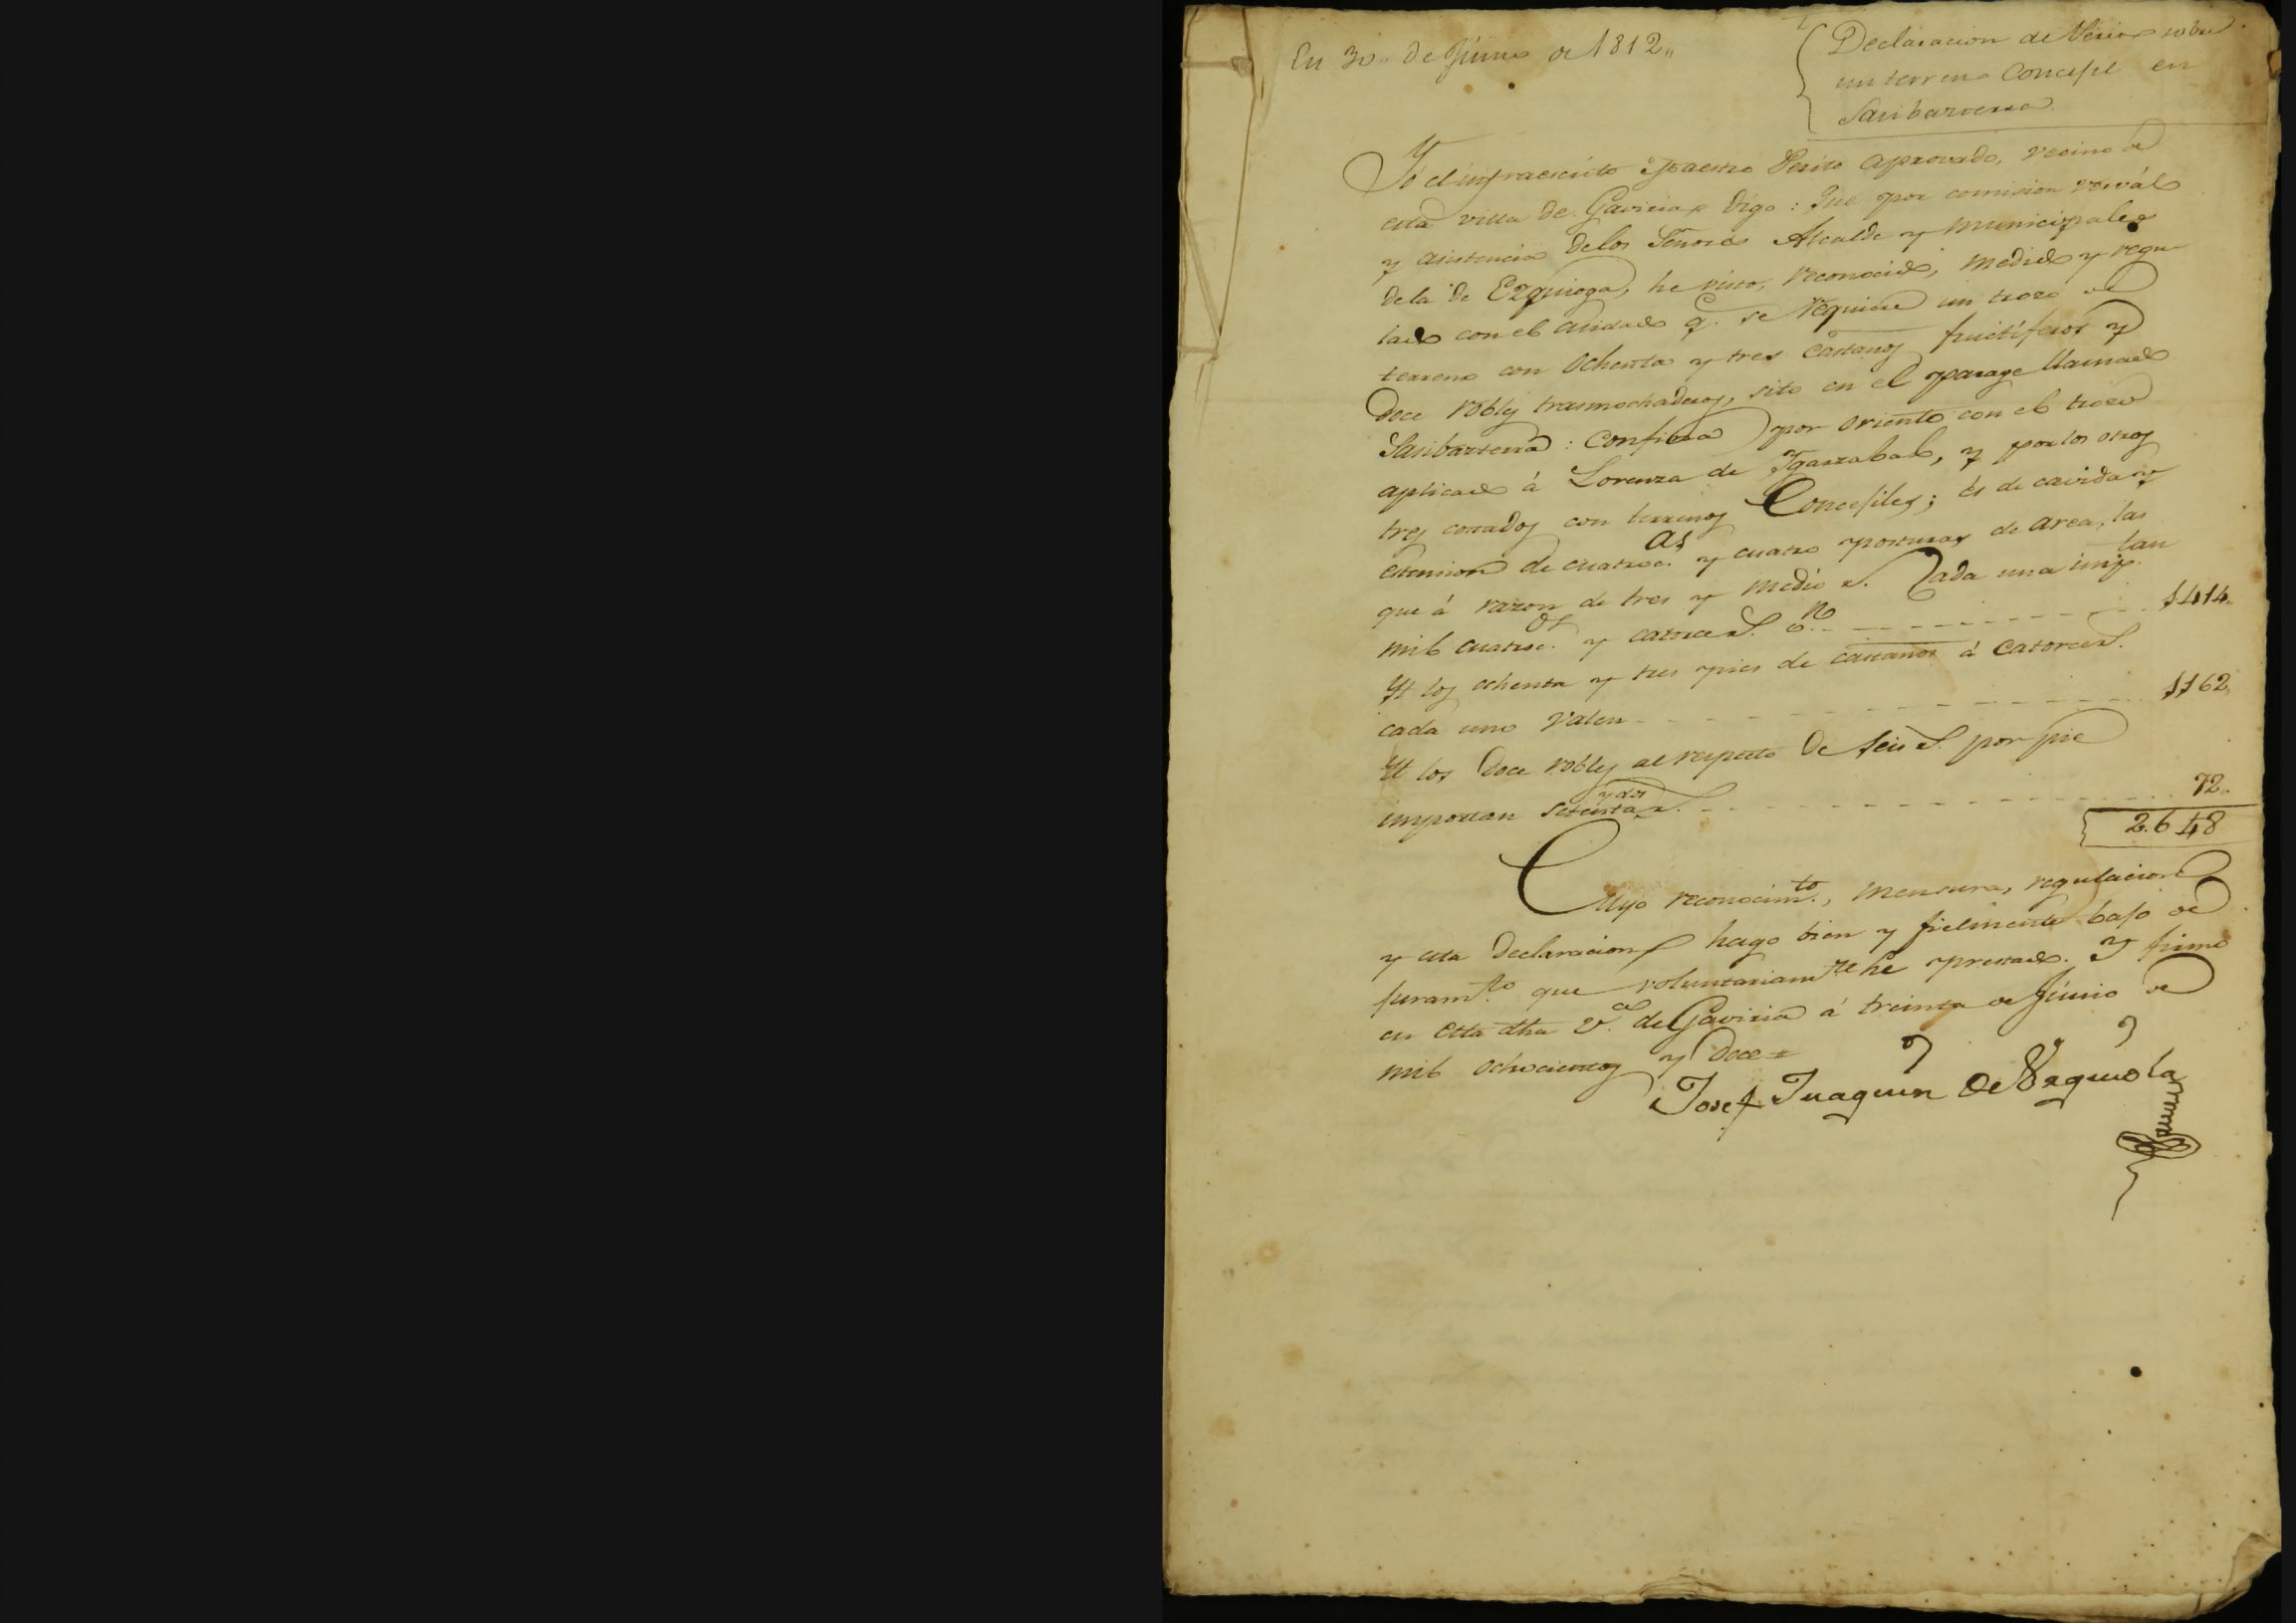 En 30,, de Junio de 1812,,
Declaracion de Perito sobre
un terreno Concejil en
Saribarrena
Yo el infraescrito Maestro Perito aprovado, vecino de
esta villa de Gaviria digo: Que por comision vervál
y asistencia de los Señores Alcalde y Municipales
de la de Ezquioga, he visto, reconocido, medido y regu
lado con el cuidado q.e se requiere un trozo de
terreno con ochenta y tres castaños fructíferos y
doce robles trasmochaderos, sito en el parage llamado
Saribarrena: Confina por oriente con el trozo
aplicado á Lorenza de Ygarzabal, y por los otros
tres costados con terrenos Concejiles; és de cavida y
estension de cuatroc.as y cuatro posturas de area, las
que á razon de tres y medio r.s cada una imp.tan
mil cuatroc.os y catorce r.s v.n 1414,,
Yt los ochenta y tres pies de castaños á catorce r.s
cada uno valen 1162,,
Yt los doce robles al respecto de seis r.s por pie
importan setenta y dos r.s 72,,
2.648
Cuyo reconocim.to, mensura, regulacion
y esta declaracion hago bien y fielmente bajo de
juram.to que voluntariam.te he prestado. Y firmo
en esta dha v.a de Gaviria á treinta de Junio de
mil ochocientos y doce=
Josef Juaquin de Urquiola